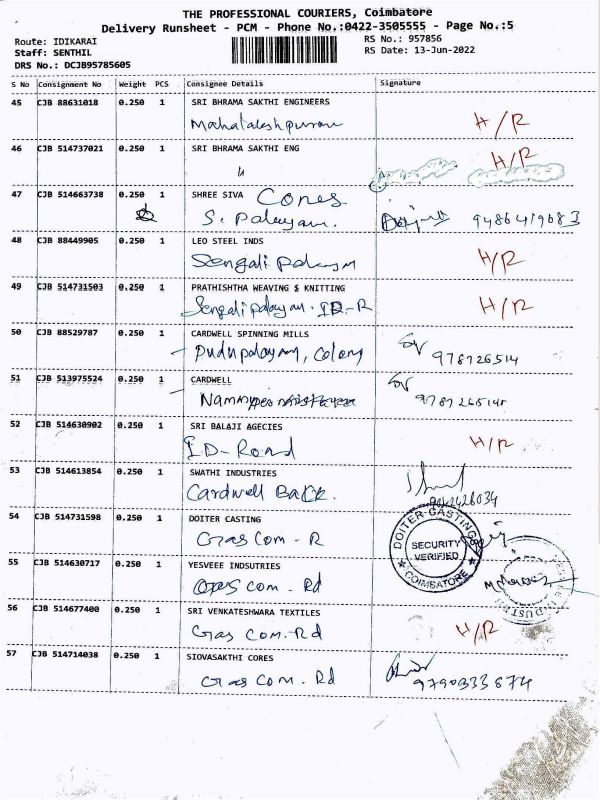 THE PROFESSIONAL COURIERS, Coimbatore
Delivery Runsheet - PCM - Phone No.:0422-3505555 - Page No.:5
Route: IDIKARAI
Staff: SENTHIL
DRS No.: DCJB95785605
RS No.: 957856
RS Date: 13-Jun-2022
S No Consignment No Weight PCS Consignee Details Signature
45 CJB 88631018 0.250 1 SRI BHRAMA SAKTHI ENGINEERS
H/R
46 CJB 514737021 0.250 1 SRI BHRAMA SAKTHI ENG
H/R
47 CJB 514663738 0.250 1 SHREE SIVA Cones
S. Palayam.
48 CJB 88449905 0.250 1 LEO STEEL INDS
Sengali palayam H/R
49 CJB 514731503 0.250 1 PRATHISHTHA WEAVING $ KNITTING
Sengalipalayam. ID-R H/R
50 CJB 88529787 0.250 1 CARDWELL SPINNING MILLS
Pudupalayam, Colony 978726514
51 CJB 513975524 0.250 1 CARDWELL
52 CJB 514630902 0.250 1 SRI BALAJI AGECIES
ID-Road H/R
53 CJB 514613854 0.250 1 SWATHI INDUSTRIES
Cardwell Back.
54 CJB 514731598 0.250 1 DOITER CASTING
Gas Com - R
DOITER-CASTINGS
SECURITY
VERIFIED
COIMBATORE
55 CJB 514630717 0.250 1 YESVEEE INDSUTRIES
Gas com. Rd
56 CJB 514677400 0.250 1 SRI VENKATESHWARA TEXTILES
Gas Com. Rd H/R
57 CJB 514714038 0.250 1 SIOVASAKTHI CORES
Gas Com. Rd 9790333674